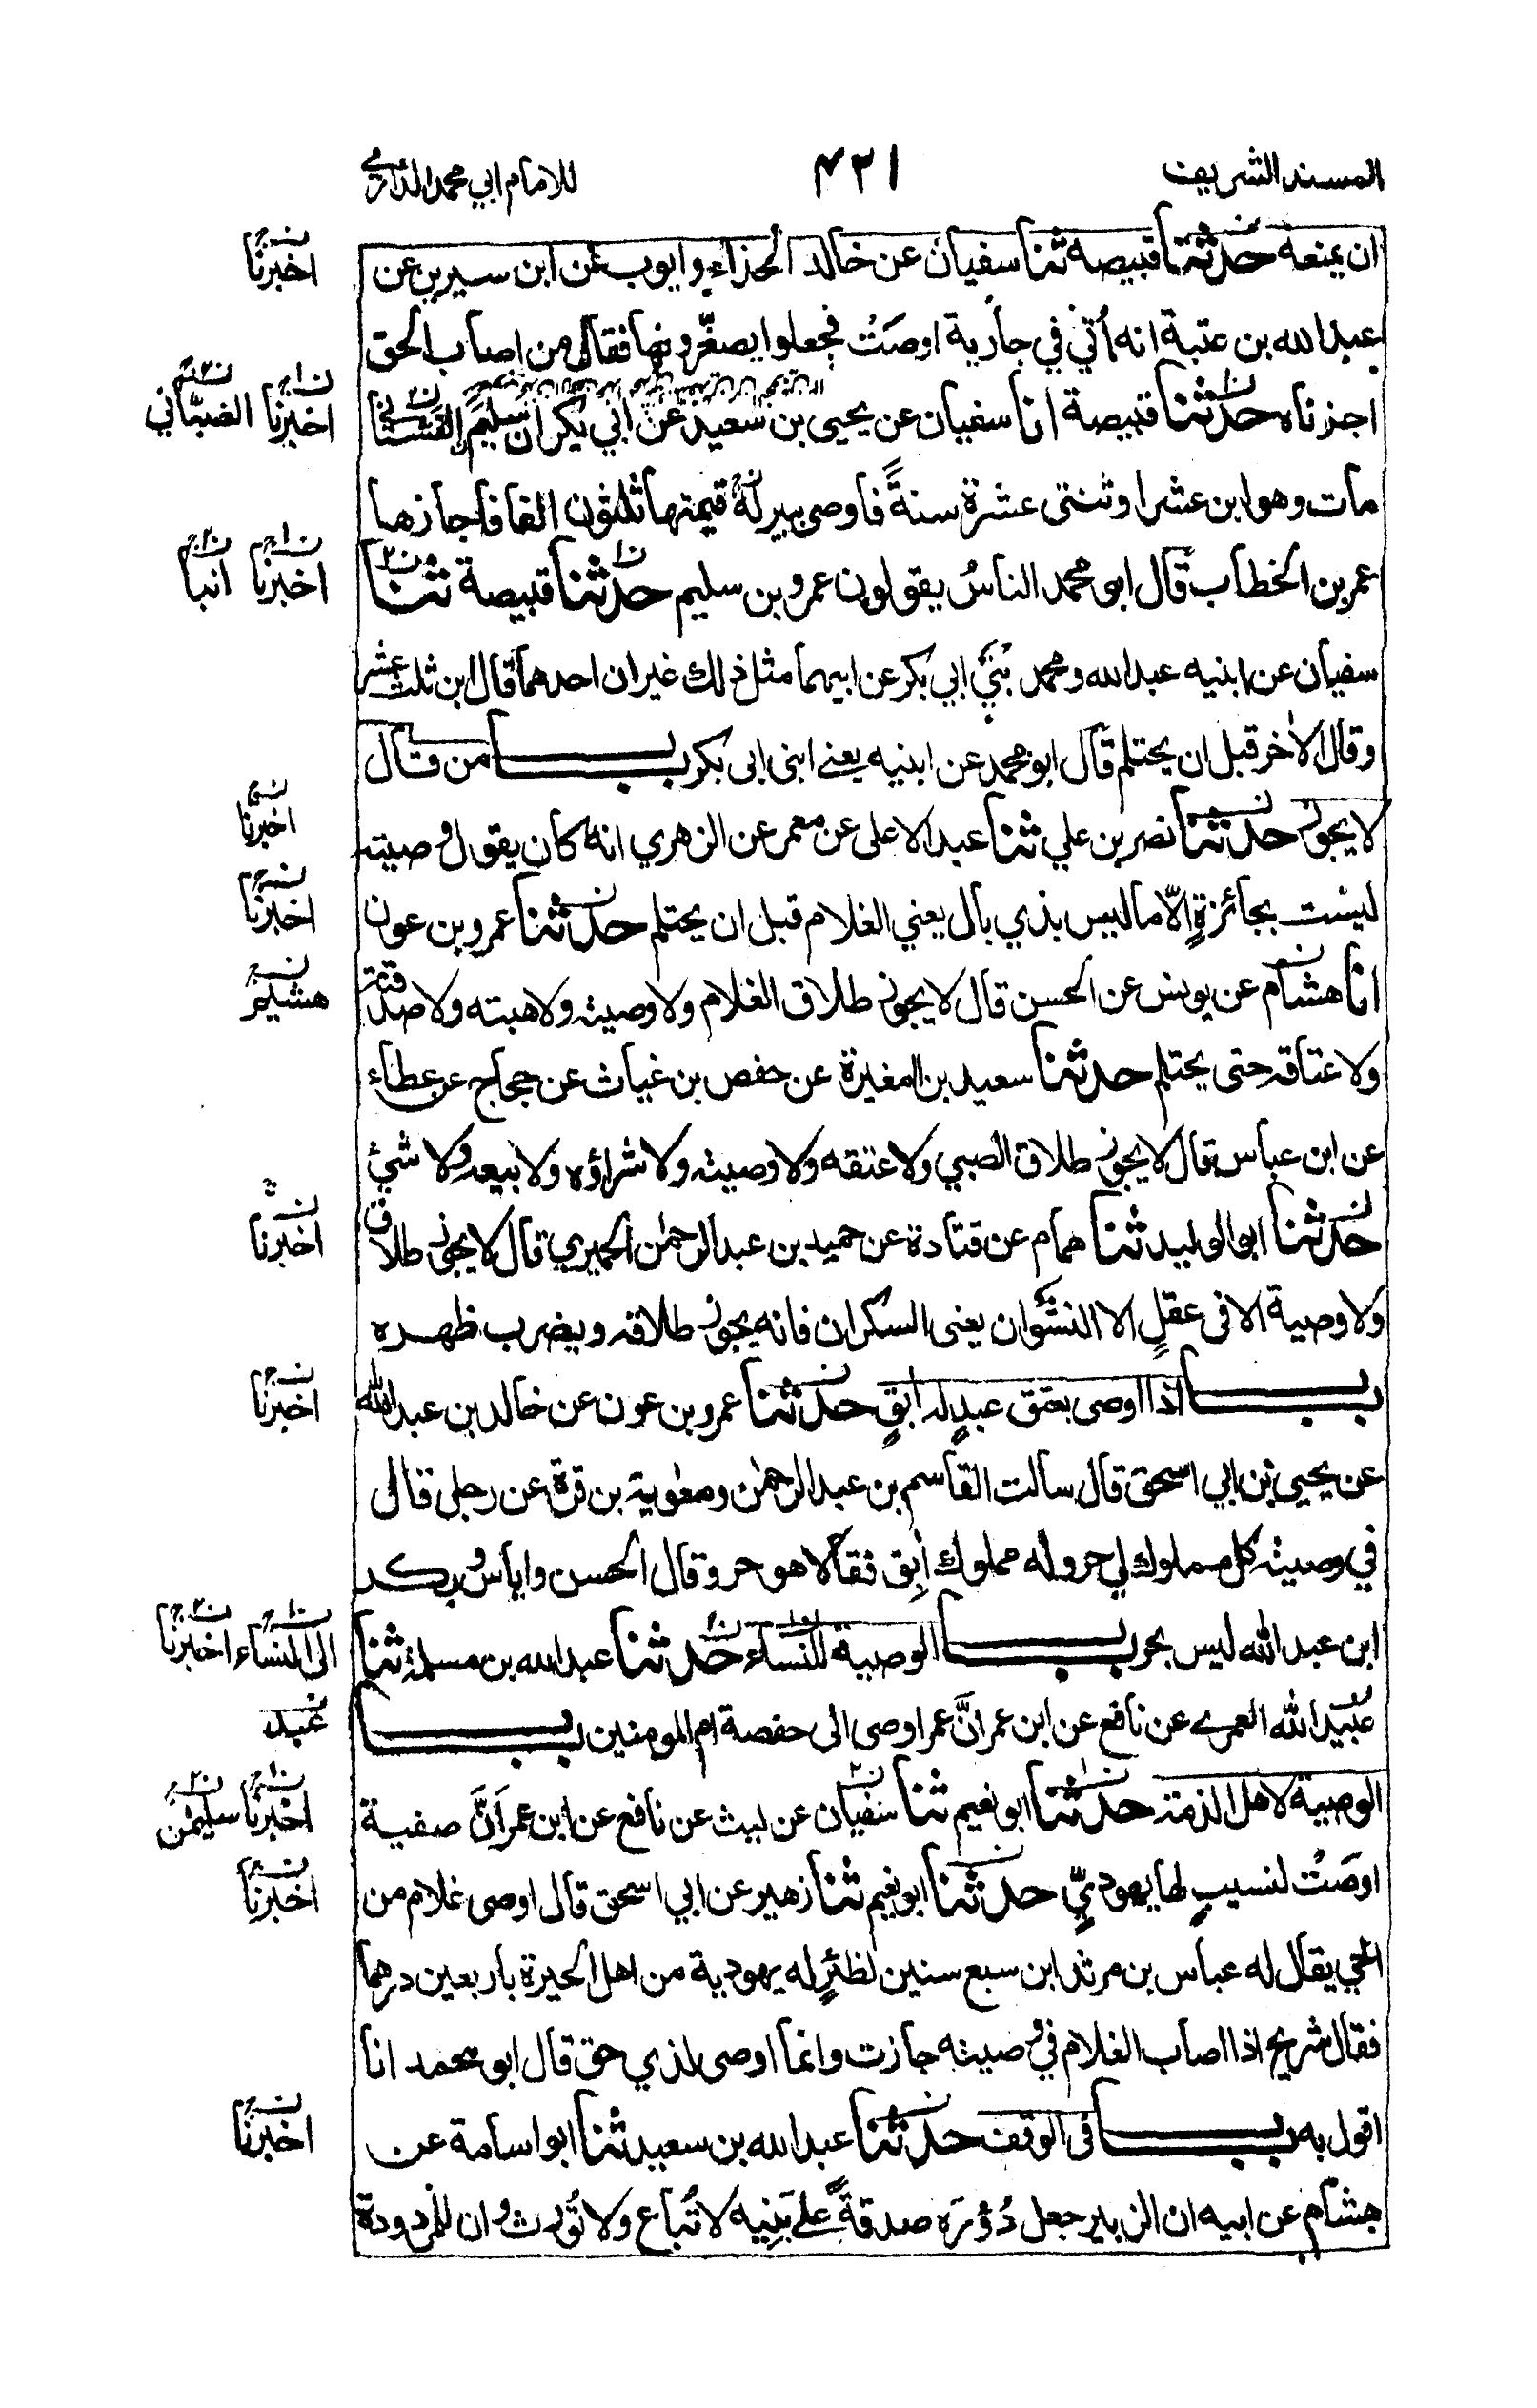 المسند الشريف ۴۲۱ للامام ابي محمد الدارمي
ان يمنعه حدثنا قبيصه ثنا سفيان عن خالد الحذاء وايوب عن ابن سيرين عن
اخبرنا
عبد الله بن عتبة انه أتي في جارية اوصت فجعلوا يصغّرونها فقال من اصاب الحق
اجزناه حدثنا قبيصة انا سفيان عن يحيى بن سعيد عن ابي بكر ان سليم الغساني
اخبرنا الضبّاني
مات وهو ابن عشر او ثنتى عشرة سنةً فاوصى ببير له قيمتها ثلثون الفا فاجازها
عمر بن الخطاب قال ابو محمد الناسُ يقولون عمرو بن سليم حدثنا قبيصة ثنا
اخبرنا انبا
سفيان عن ابنيه عبد الله ومحمد بني ابي بكر عن ابيهما مثل ذلك غير ان احدهما قال ابن ثلث عشر
وقال الاخر قبل ان يحتلم قال ابو محمد عن ابنيه يعنے ابنى ابى بكر باب من قال
لا يجوز حدثنا نصر بن علي ثنا عبد الاعلى عن معمر عن الزهري انه كان يقول وصيته
اخبرنا
ليست بجائزةٍ الّا ما ليس بذي بال يعني الغلام قبل ان يحتلم حدثنا عمرو بن عون
اخبرنا
انا هشام عن يونس عن الحسن قال لا يجوز طلاق الغلام ولا وصيته ولا هبته ولا صدقته
هشيم
ولا عتاقه حتى يحتلم حدثنا سعيد بن المغيرة عن حفص بن غياث عن حجاج عن عطاء
عن ابن عباس قال لا يجوز طلاق الصبي ولا عتقه ولا وصيته ولا شراؤه ولا بيعه ولا شئ
حدثنا ابو الوليد ثنا همام عن قتادة عن حميد بن عبد الرحمٰن الحميري قال لا يجوز طلاق
اخبرنا
ولا وصية الا فى عقلٍ الا النشوان يعنى السكران فانه يجوز طلاقه ويضرب ظهره
باب اذا اوصى بعتق عبدٍ له ابقٍ حدثنا عمرو بن عون عن خالد بن عبد الله
اخبرنا
عن يحيى بن ابي اسحق قال سالت القاسم بن عبد الرحمٰن ومعٰوية بن قرة عن رجل قال
في وصيته كل مملوك لي حر وله مملوك اٰبق فقالا هو حر وقال الحسن واياس وبكر
ابن عبد الله ليس بحر باب الوصية للنساء حدثنا عبد الله بن مسلمة ثنا
الى النساء اخبرنا
عبيد الله العمرے عن نافع عن ابن عمر انَّ عمر اوصى الى حفصة ام المومنين باب
عبد
الوصية لاهل الذمة حدثنا ابو نعيم ثنا سفيان عن ليث عن نافع عن ابن عمر اَنَّ صفية
اخبرنا سليمٰن
اوصَتْ لنسيبٍ لها يهوديٍّ حدثنا ابو نعيم ثنا زهير عن ابي اسحق قال اوصى غلام من
اخبرنا
الحي يقال له عباس بن مرثد ابن سبع سنين لظئرٍ له يهودية من اهل الحيرة باربعين درهما
فقال شريح اذا اصاب الغلام في وصيته جازت وانما اوصى لذي حق قال ابو محمد انا
اقول به باب فى الوقف حدثنا عبد الله بن سعيد ثنا ابو اسامة عن
اخبرنا
هشام عن ابيه ان الزبير جعل دُوْرَه صدقةً علے بَنِيه لا تُباع ولا تُورث وان للمردودة